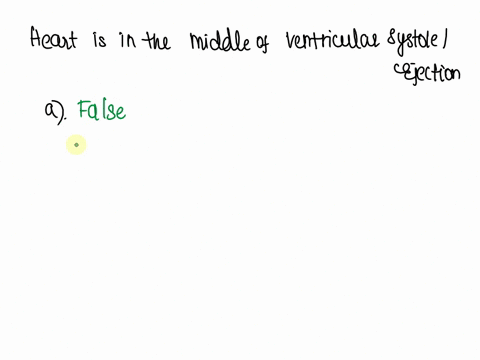 Heart is in the middle of ventricular systole/
ejection
a). False